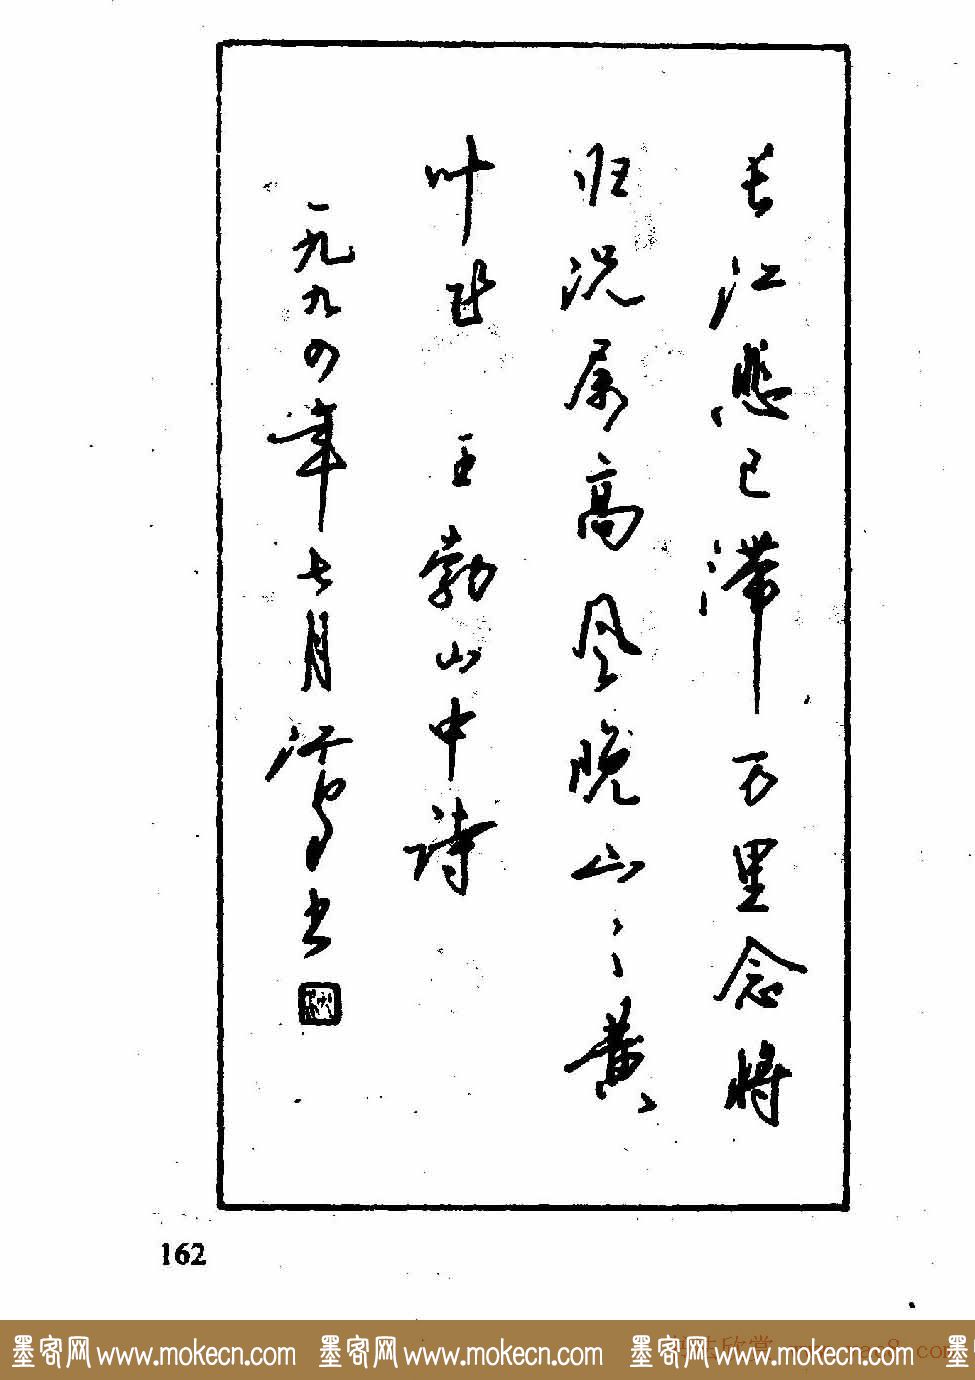 长江悲已滞万里念将
归况属高风晚山々黄
叶飞 王勃山中诗
一九九四年七月江鸟书
162
墨客网 www.mokecn.com 墨客网 www.mokecn.com 墨客网 www.mokecn.com 墨